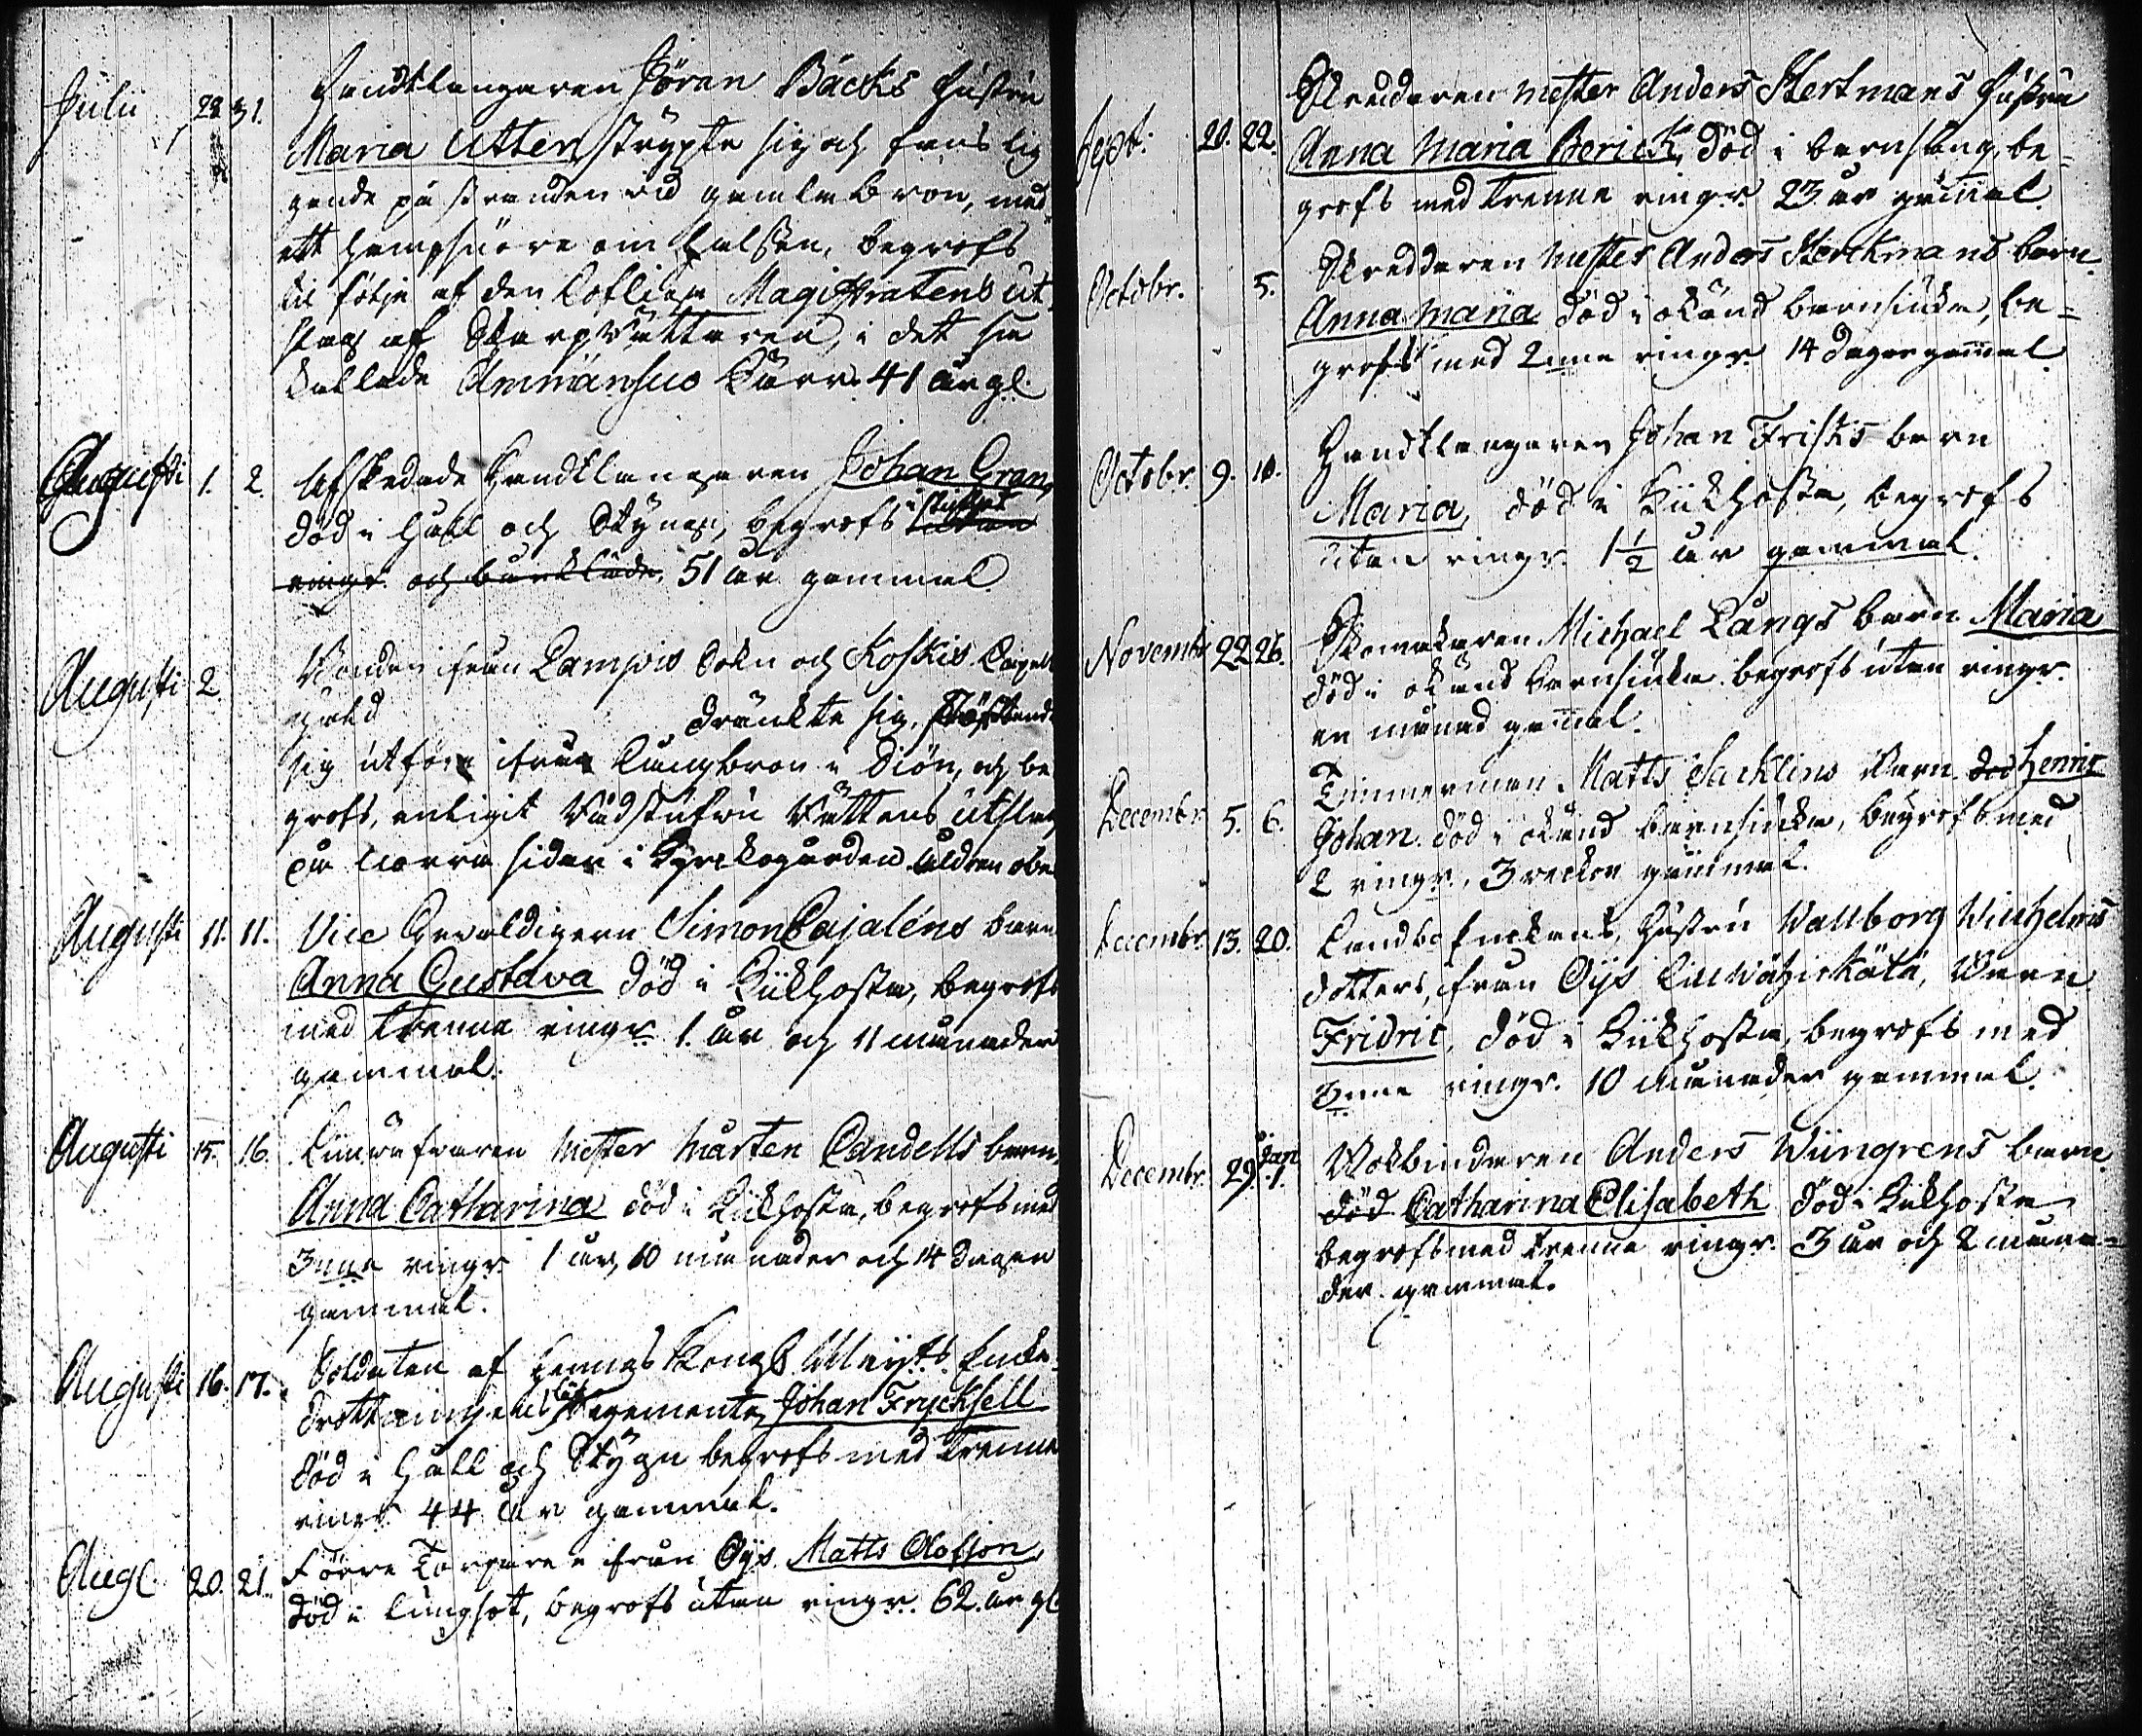 Julii 28. 31. Handtlangaren Jöran Bäcks hustru
Maria Utter, strypte sig och fans lig
gande på stranden vid gamla bron, med
ett hampsnöre om halsen, begrofs
til följe af den Loflige Magistratens ut
slag af Skarprättaren, i det så
kallade Ämmänsuo Kärr. 41 år gl.
Augusti 1. 2. Afskedade Handtlangaren Johan Gran,
död i Håll och Styng, begrofs i stillhet utan
ringr. och bårkläde, 51 år gammal
Augusti 2. Bonden ifrån Lampis Sokn och Koskis Capell
gäld dränkte sig, störtande
sig utföre ifrån Långbron i Siön, och be
grofs, enligit Rådstufvu Rättens utslag
på norra sidan i Kyrckogården åldren obe
Augusti 11. 11. Vice Gevaldigern Simon Cajaléns barn
Anna Gustava död i Kikhosta, begrofs
med trenne ringr. 1. år och 11 månader
gammal.
Augusti 15. 16. Linväfvaren Mester Mårten Candells barn,
Anna Catharina död i Kikhosta, begrofs med
3nne ringr. 1 år, 10 månader och 14 dagar
gammal.
Augusti 16. 17. Soldaten af Hennes Kongl. Maijts. Enke
Drottningens Regemente, Johan Frycksell
död i Håll och Styng begrofs med trenne
ringr. 44 år gammal.
Aug. 20. 21. Förre Torparen ifrån Öijs Matts Olofson,
död i lungsot, begrofs utan ringr. 62. år gl.
Sept. 20. 22. Skreddaren Mester Anders Stertmans hustru
Anna Maria Berick, död i barnsäng, be=
grofs med trenne ringr. 23 år gammal.
Octobr. 5. Skreddaren Mester Anders Sterckmans barn
Anna Maria död i okänd barnsiuka, be=
grofs med 2nne ringr. 14 dagar gammal
Octobr. 9. 10. Handtlangaren Johan Frisks barn
Maria, död i Kikhosta, begrofs
utan ringr. 1 1/2 år gammal.
Novembr 22 26. Skomakaren Michael Längs barn Maria
död i okänd barnsiuka begrofs utan ringr.
en månad gammal.
Decembr 5. 6. Timmerman Matts Sacklins Barn död Henric
Johan. död i okänd barnsiuka, begrofs med
2 ringr. 3 veckor gammal.
Decembr. 13. 20. Landbo Enckans, hustru Wallborg Wilhelms
dotters, från Öijs Barn
Fridric, död i Kikhosta, begrofs med
3nne ringr. 10 månader gammal.
Decembr. 29. Jan 1. Bokbinderen Anders Wiingrens barn
död Catharina Elisabeth död i Kikhosta
begrofs med trenne ringr. 3 år och 2 måna=
der gammal.